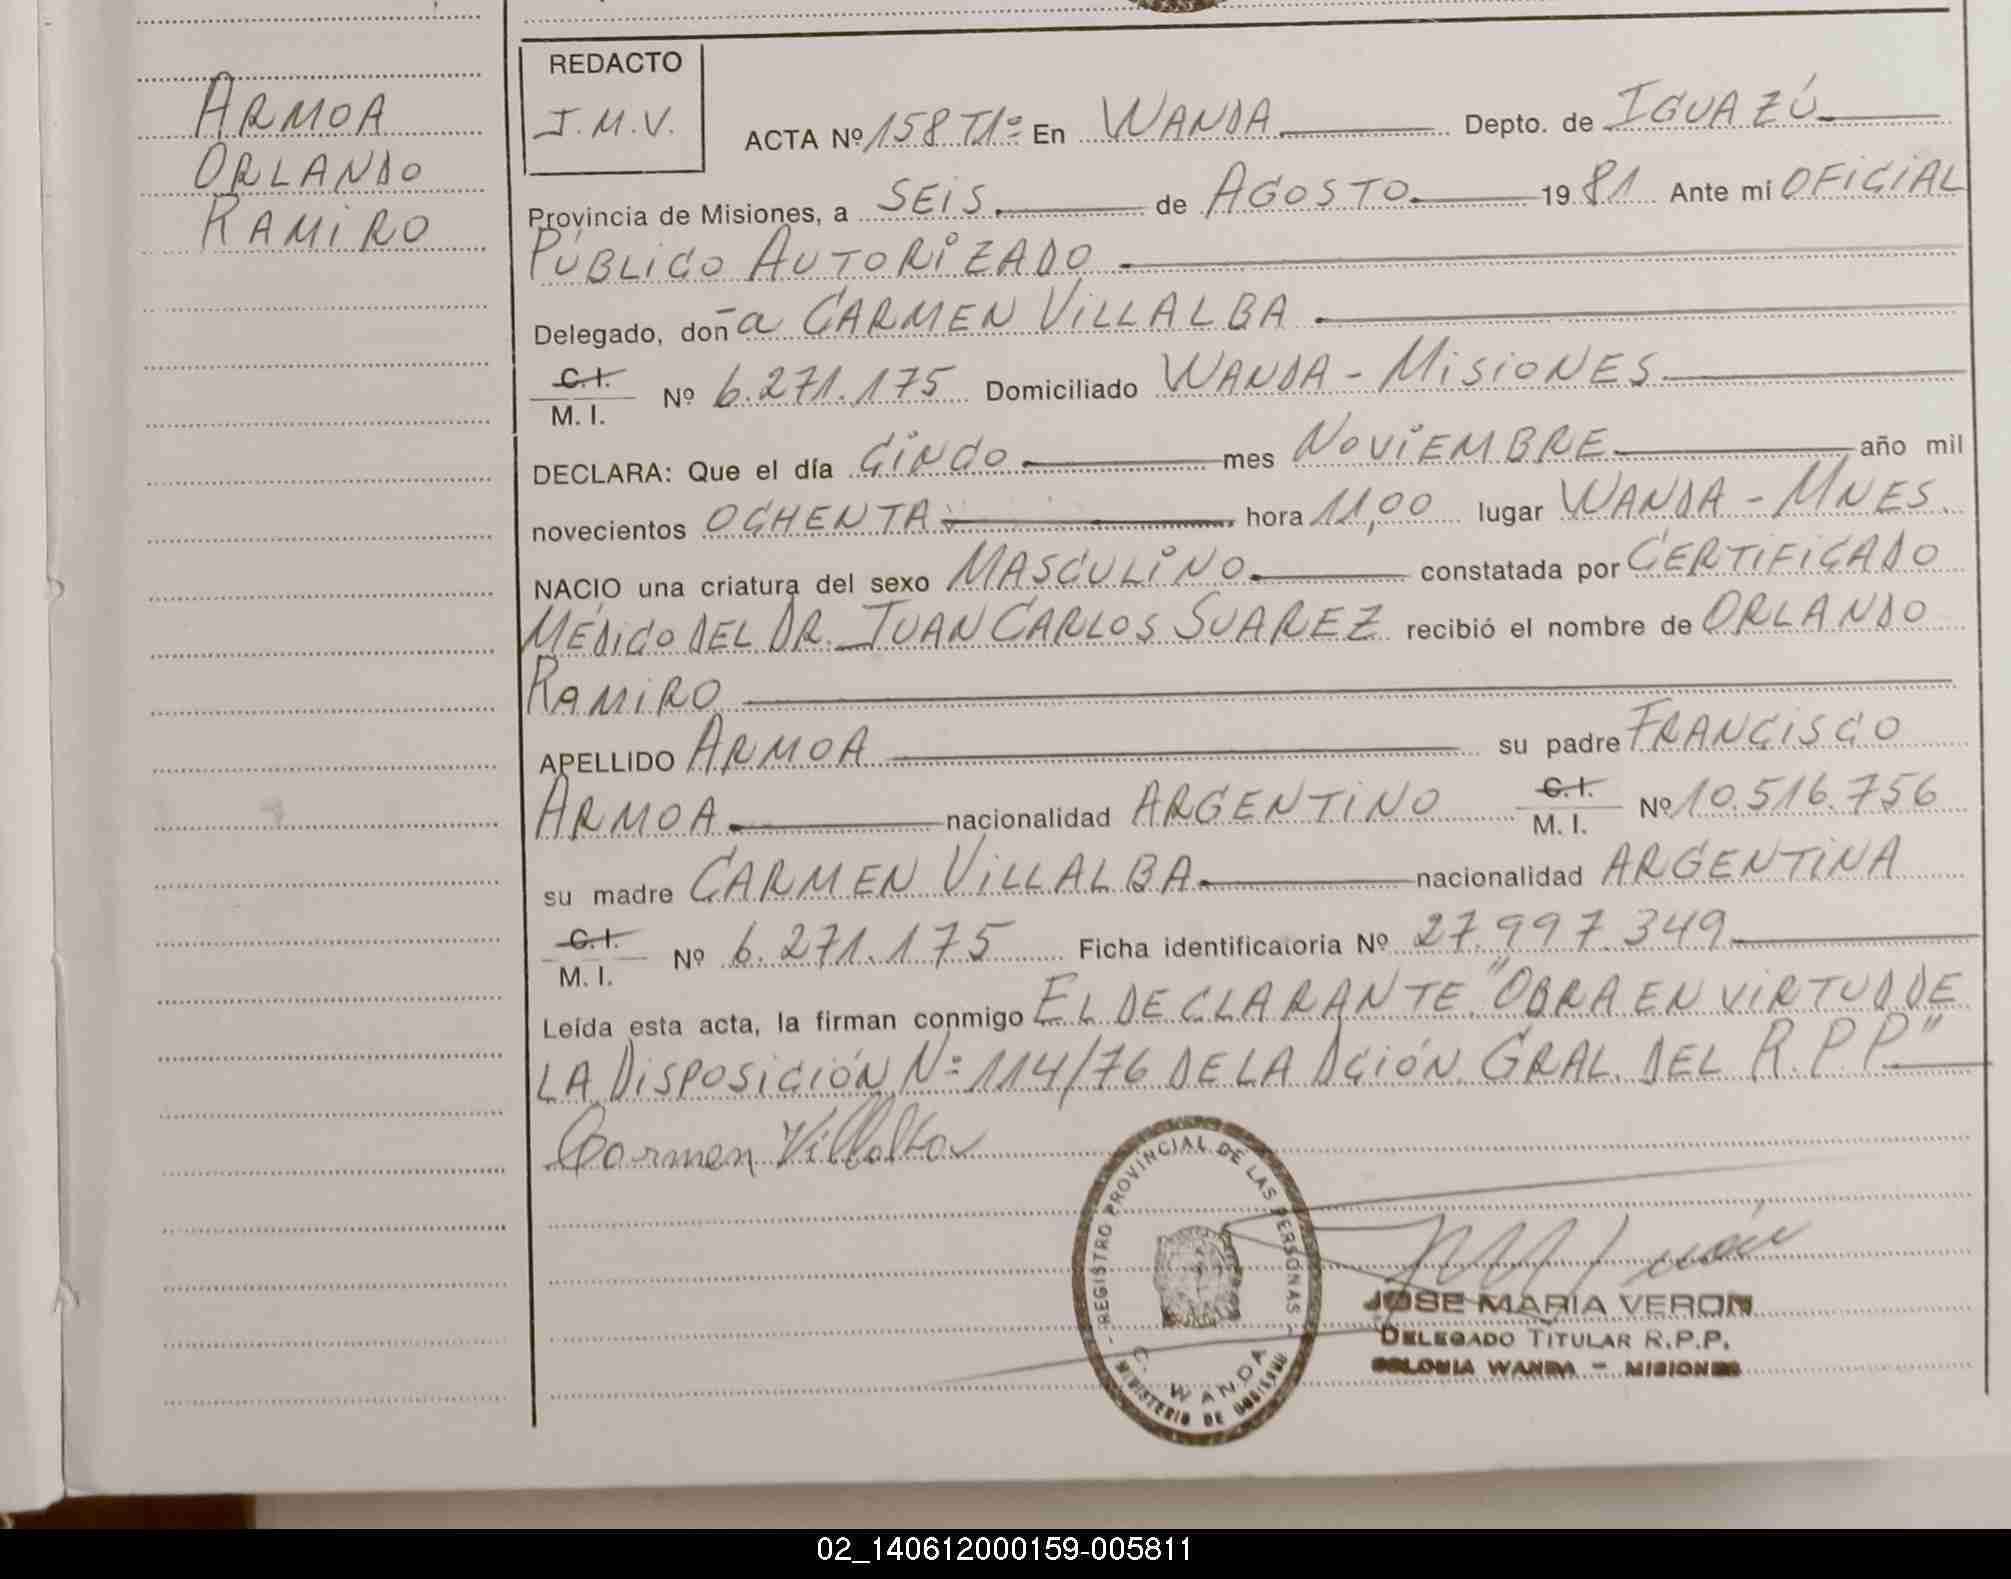 ARMOA
ORLANDO
RAMIRO
REDACTO
J.M.V.
ACTA Nº 158 T1º En WANDA Depto. de IGUAZÚ
Provincia de Misiones, a SEIS de AGOSTO 1981 Ante mi OFICIAL
PÚBLICO AUTORIZADO
Delegado, doña CARMEN VILLALBA
C.I.
M.I. Nº 6.271.175 Domiciliado WANDA - MISIONES
DECLARA: Que el día CINCO mes NOVIEMBRE año mil
novecientos OCHENTA hora 11,00 lugar WANDA - MNES.
NACIO una criatura del sexo MASCULINO constatada por CERTIFICADO
MÉDICO DEL DR. JUAN CARLOS SUAREZ recibió el nombre de ORLANDO
RAMIRO
APELLIDO ARMOA su padre FRANCISCO
ARMOA nacionalidad ARGENTINO C.I. M.I. Nº 10.516.756
su madre CARMEN VILLALBA nacionalidad ARGENTINA
C.I.
M.I. Nº 6.271.175 Ficha identificatoria Nº 27.997.349
Leída esta acta, la firman conmigo EL DECLARANTE. "OBRA EN VIRTUD DE
LA DISPOSICIÓN Nº 114/76 DE LA DCIÓN GRAL. DEL R.P.P"
Carmen Villalba
- REGISTRO PROVINCIAL DE LAS PERSONAS -
C. WANDA
MINISTERIO DE GOBIERNO
JOSE MARIA VERON
DELEGADO TITULAR R.P.P.
COLONIA WANDA - MISIONES
02_140612000159-005811